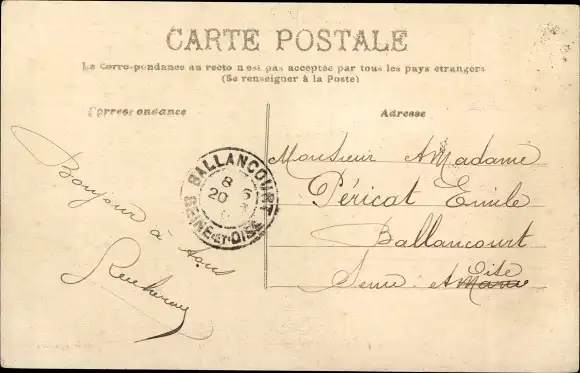 CARTE POSTALE
La Correspondance au recto n'est pas acceptée par tous les pays étrangers
(Se renseigner à la Poste)
Correspondance
Adresse
Bonjour à tous
BALLANCOURT
8
20 5
SEINE-ET-OISE
Monsieur & Madame
Péricat Emile
Ballancourt
Seine & Oise